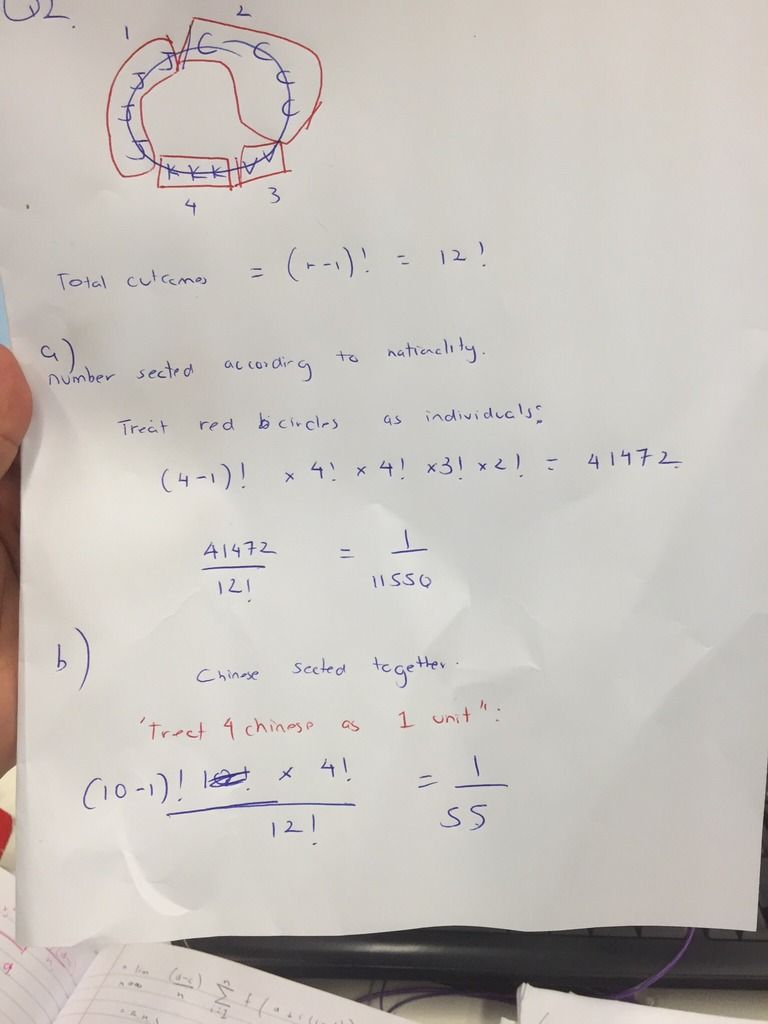 Q2.
1 2
J J J J C C C C
K K K V V
4 3
Total outcomes = (r-1)! = 12!
a)
number seated according to nationality.
Treat red circles as individuals:
(4-1)! × 4! × 4! × 3! × 2! = 41472
41472 / 12! = 1 / 11550
b)
Chinese seated together.
"Treat 4 chinese as 1 unit":
(10-1)! × 4! / 12! = 1 / 55